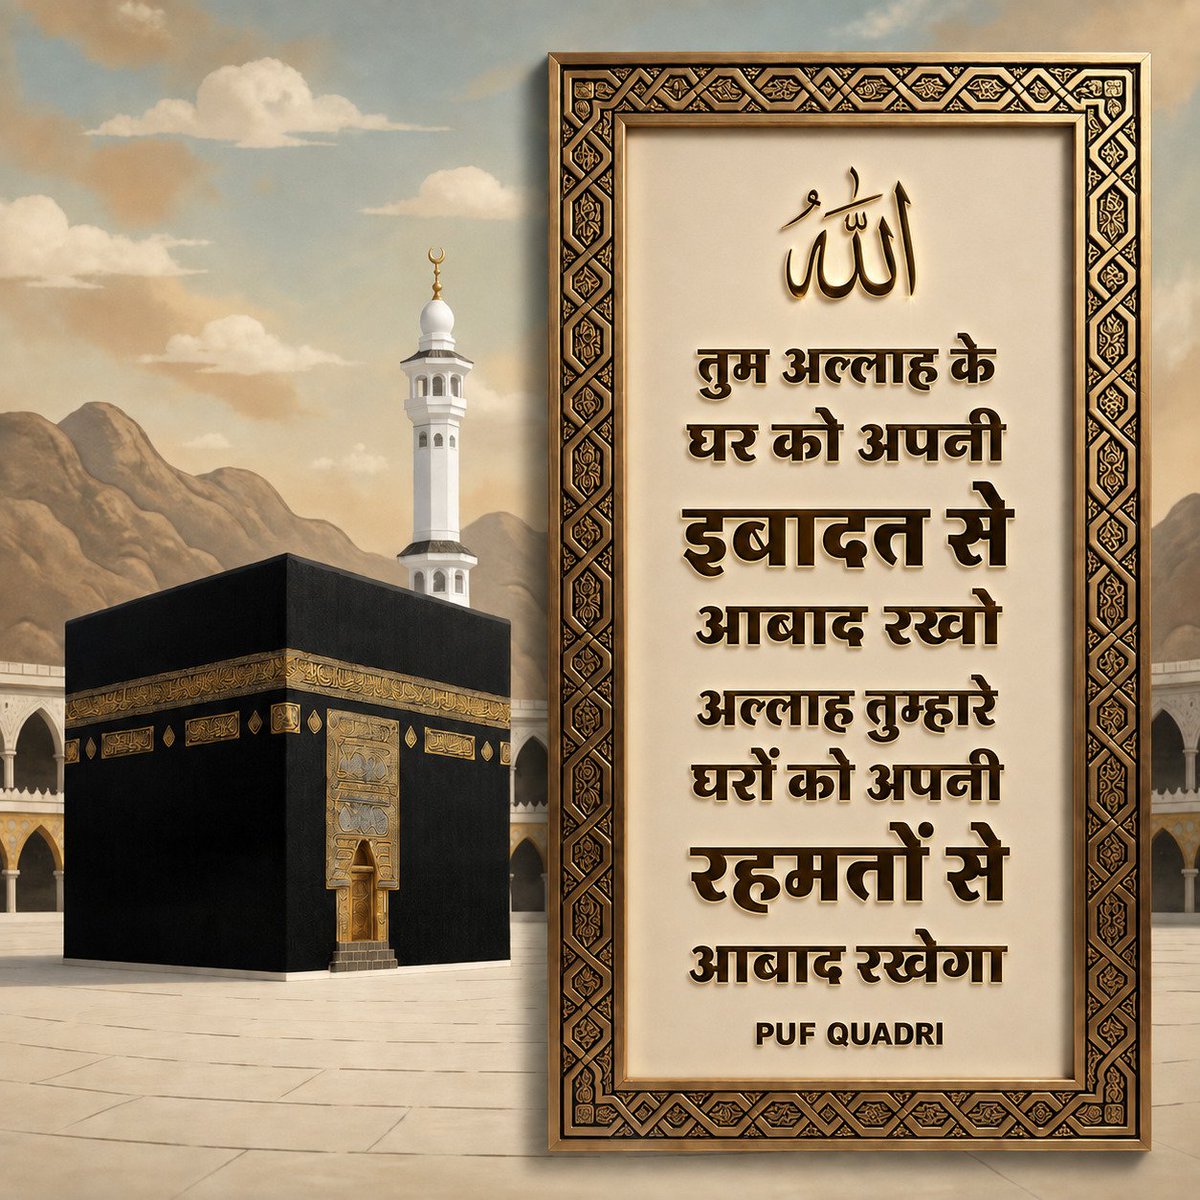 الله
तुम अल्लाह के
घर को अपनी
इबादत से
आबाद रखो
अल्लाह तुम्हारे
घरों को अपनी
रहमतों से
आबाद रखेगा
PUF QUADRI